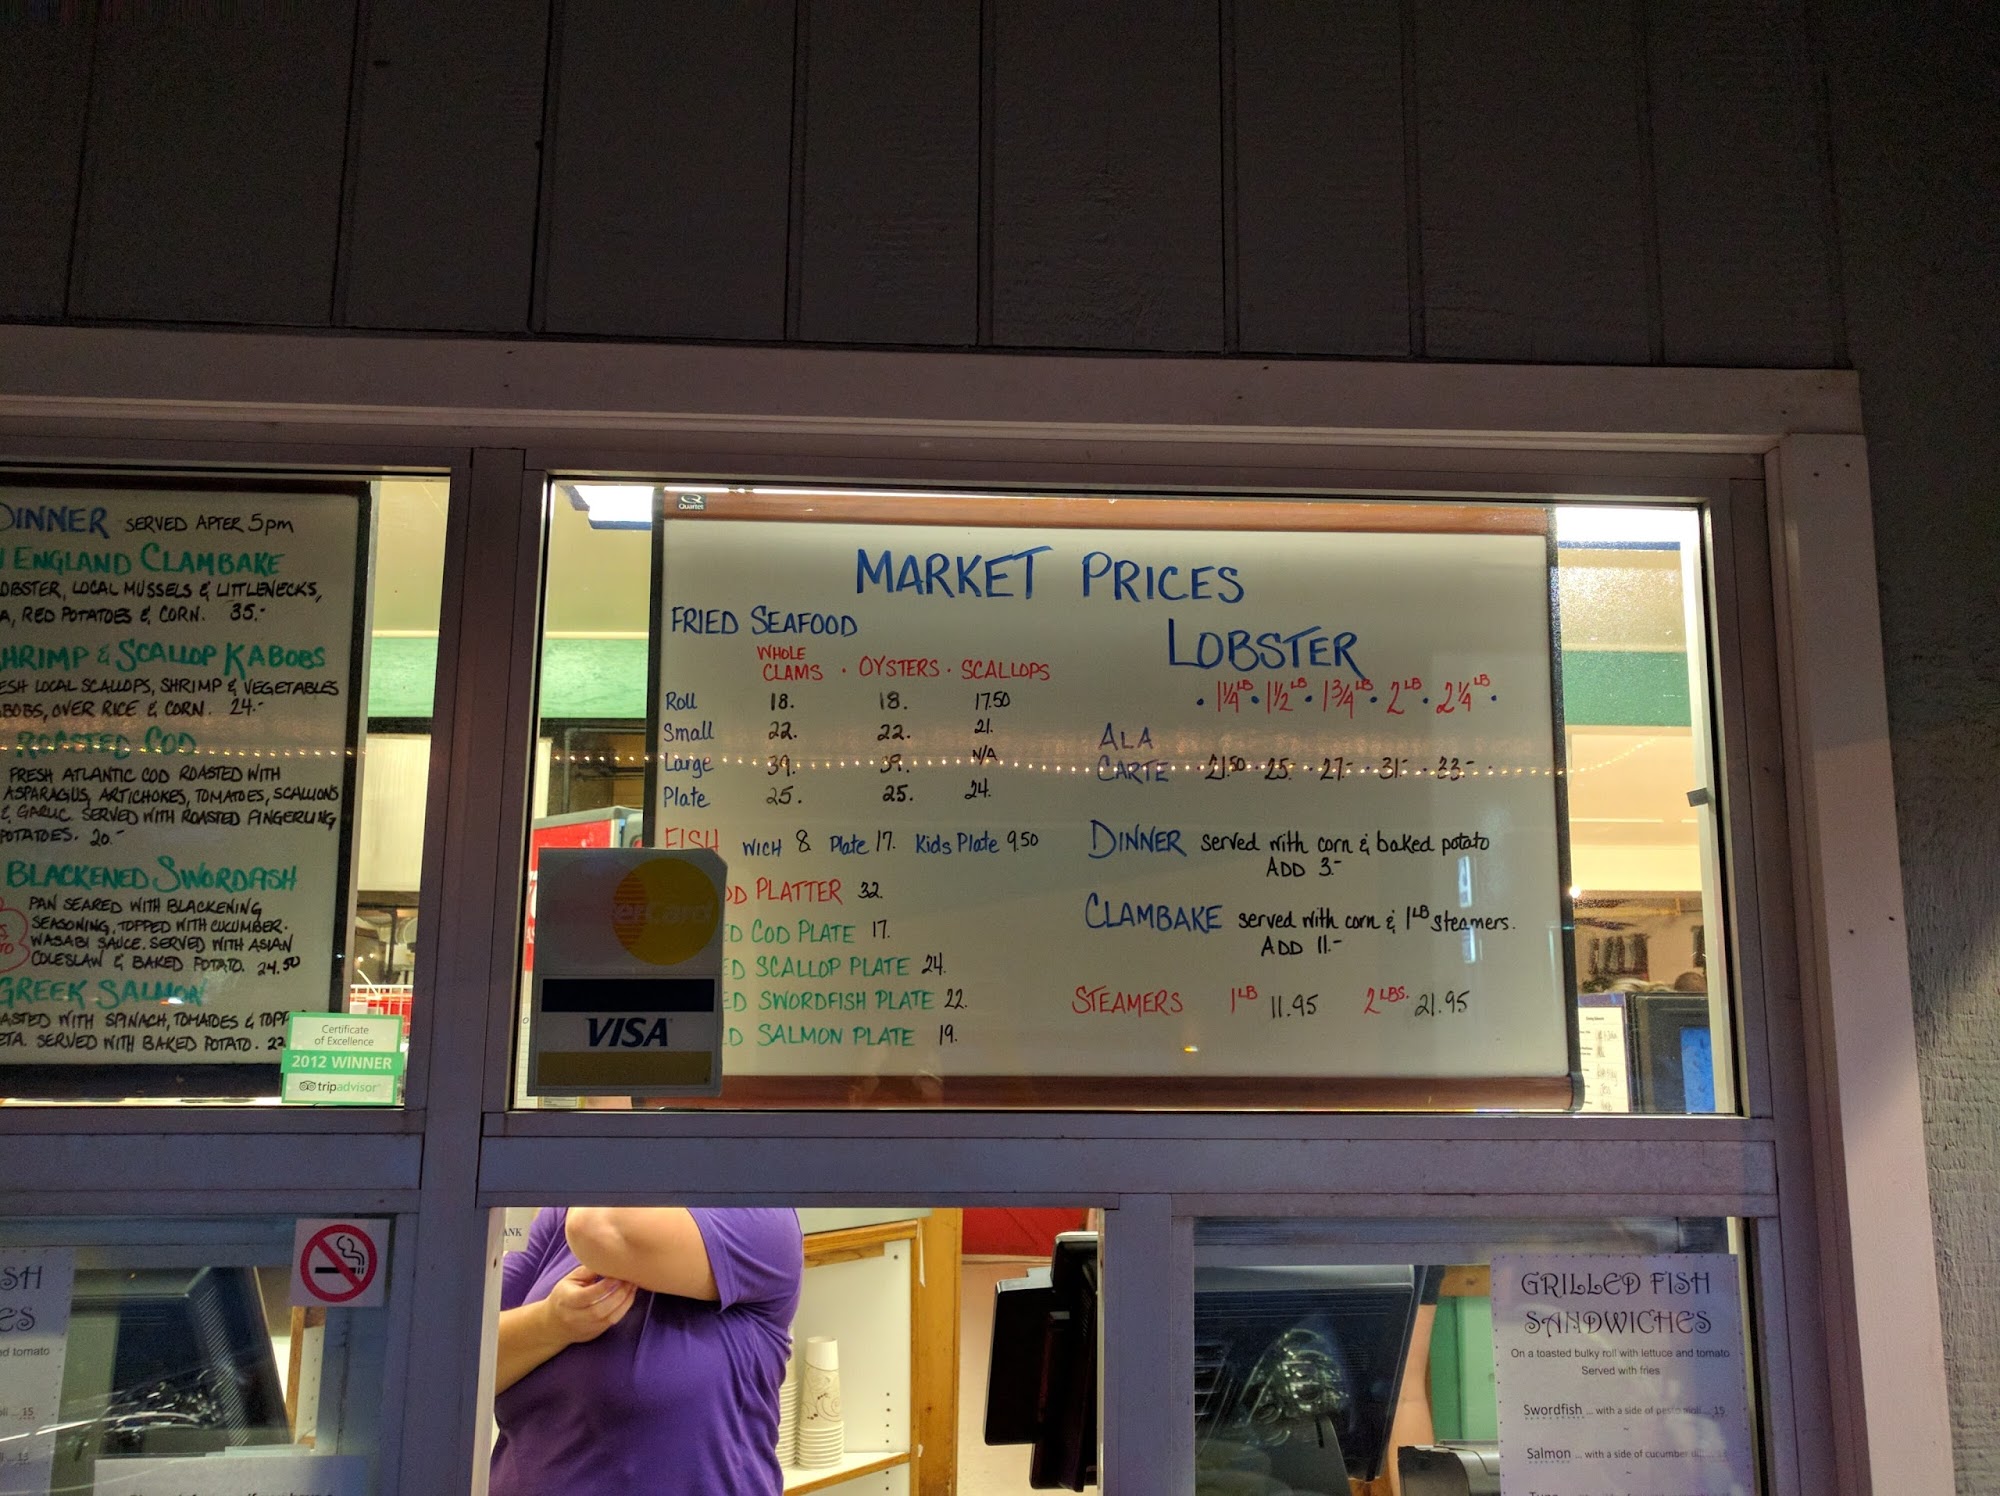 DINNER SERVED AFTER 5pm
ENGLAND CLAMBAKE
LOBSTER, LOCAL MUSSELS & LITTLENECKS,
RED POTATOES & CORN. 35.-
SHRIMP & SCALLOP KABOBS
FRESH LOCAL SCALLOPS, SHRIMP & VEGETABLES
KABOBS, OVER RICE & CORN. 24.-
ROASTED COD
FRESH ATLANTIC COD ROASTED WITH
ASPARAGUS, ARTICHOKES, TOMATOES, SCALLIONS
& GARLIC. SERVED WITH ROASTED FINGERLING
POTATOES. 20.-
BLACKENED SWORDFISH
PAN SEARED WITH BLACKENING
SEASONING, TOPPED WITH CUCUMBER.
WASABI SAUCE. SERVED WITH ASIAN
COLESLAW & BAKED POTATO. 24.50
GREEK SALMON
ROASTED WITH SPINACH, TOMATOES &
SERVED WITH BAKED POTATO.
Certificate
of Excellence
2012 WINNER
tripadvisor
Quartet
MARKET PRICES
FRIED SEAFOOD
WHOLE
CLAMS • OYSTERS • SCALLOPS
Roll 18. 18. 17.50
Small 22. 22. 21.
Large 39. 39. N/A
Plate 25. 25. 24.
FISH WICH 8 Plate 17. Kids Plate 9.50
PLATTER 32.
COD PLATE 17.
SCALLOP PLATE 24.
SWORDFISH PLATE 22.
SALMON PLATE 19.
VISA
LOBSTER
• 1¼ LB • 1½ LB • 1¾ LB • 2 LB • 2¼ LB •
ALA
CARTE • 21.50 • 25.- • 27.- • 31.- • 33.- •
DINNER served with corn & baked potato
ADD 3.-
CLAMBAKE served with corn & 1 LB steamers.
ADD 11.-
STEAMERS 1 LB 11.95 2 LBS. 21.95
GRILLED FISH
SANDWICHES
On a toasted bulky roll with lettuce and tomato
Served with fries
Swordfish ... with a side of pesto aioli ... 15
Salmon ... with a side of cucumber
tomato
15